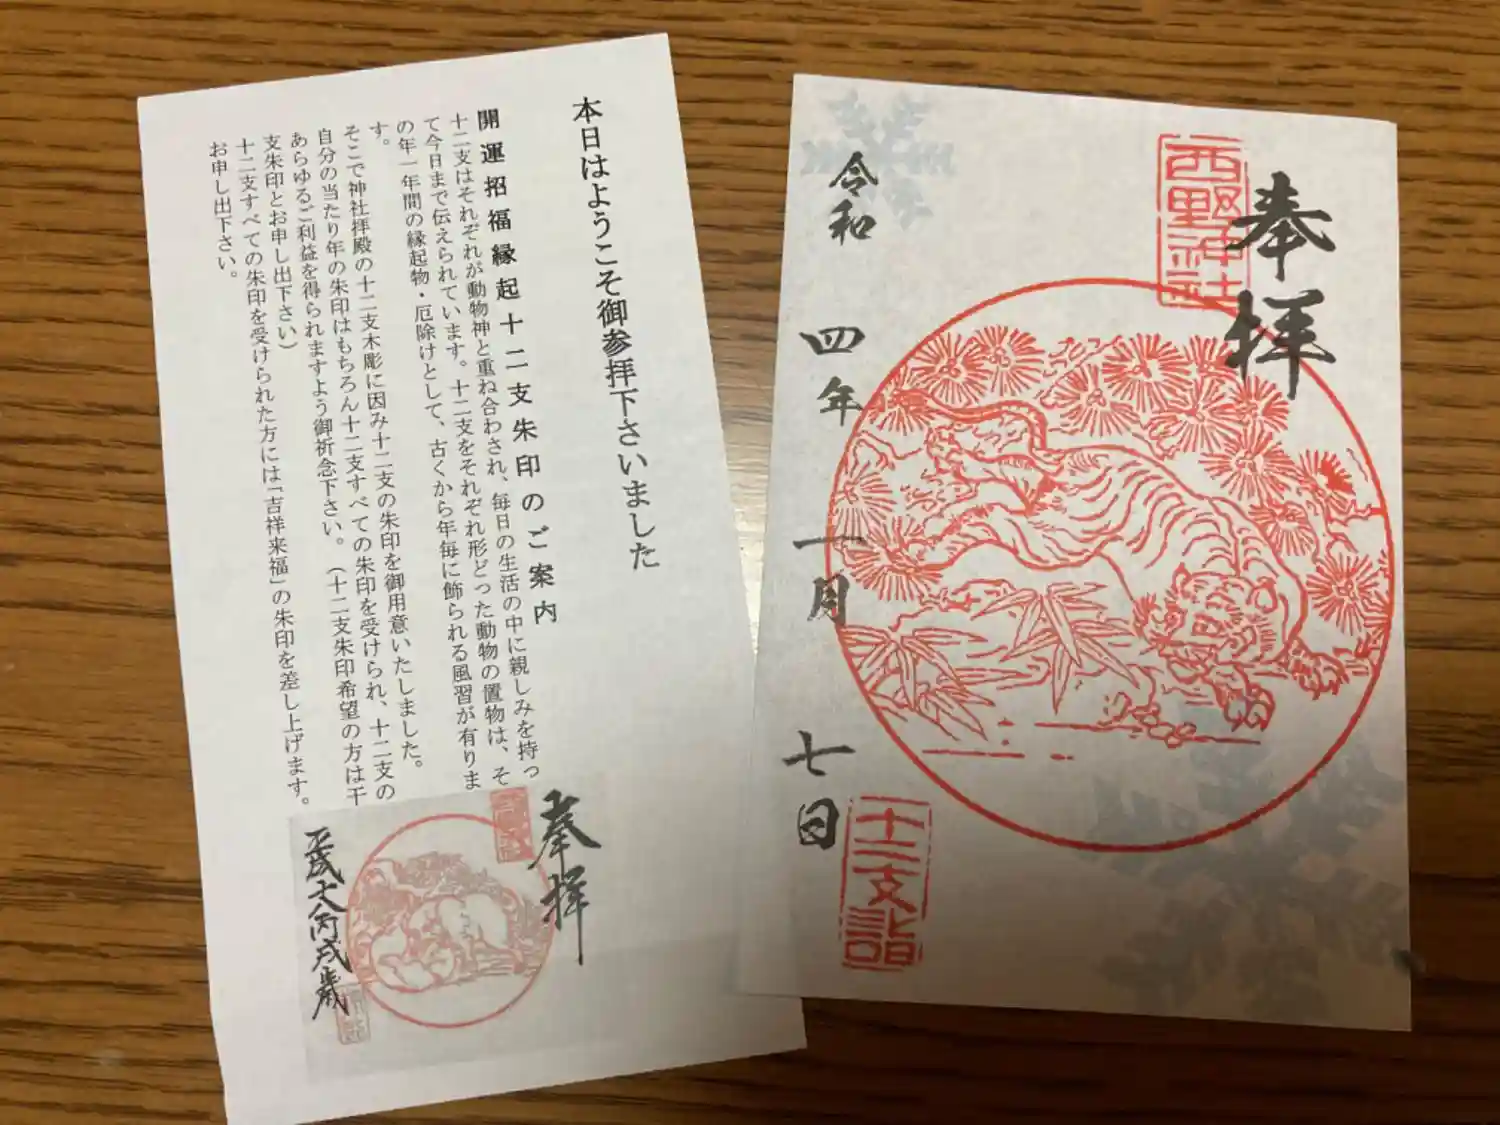 本日はようこそ御参拝下さいました
開運招福縁起十二支朱印のご案内
十二支はそれぞれが動物神と重ね合わされ、毎日の生活の中に親しみを持っ
て今日まで伝えられています。十二支をそれぞれ形どった動物の置物は、そ
の年一年間の縁起物・厄除けとして、古くから年毎に飾られる風習が有りま
す。
そこで神社拝殿の十二支木彫に因み十二支の朱印を御用意いたしました。
自分の当たり年の朱印はもちろん十二支すべての朱印を受けられ、十二支の
あらゆるご利益を得られますよう御祈念下さい。（十二支朱印希望の方は干
支朱印とお申し出下さい）
十二支すべての朱印を受けられた方には「吉祥来福」の朱印を差し上げます。
お申し出下さい。
奉拝
平成十八丙戌歳
奉拝
西野神社
令和四年一月七日
十二支詣